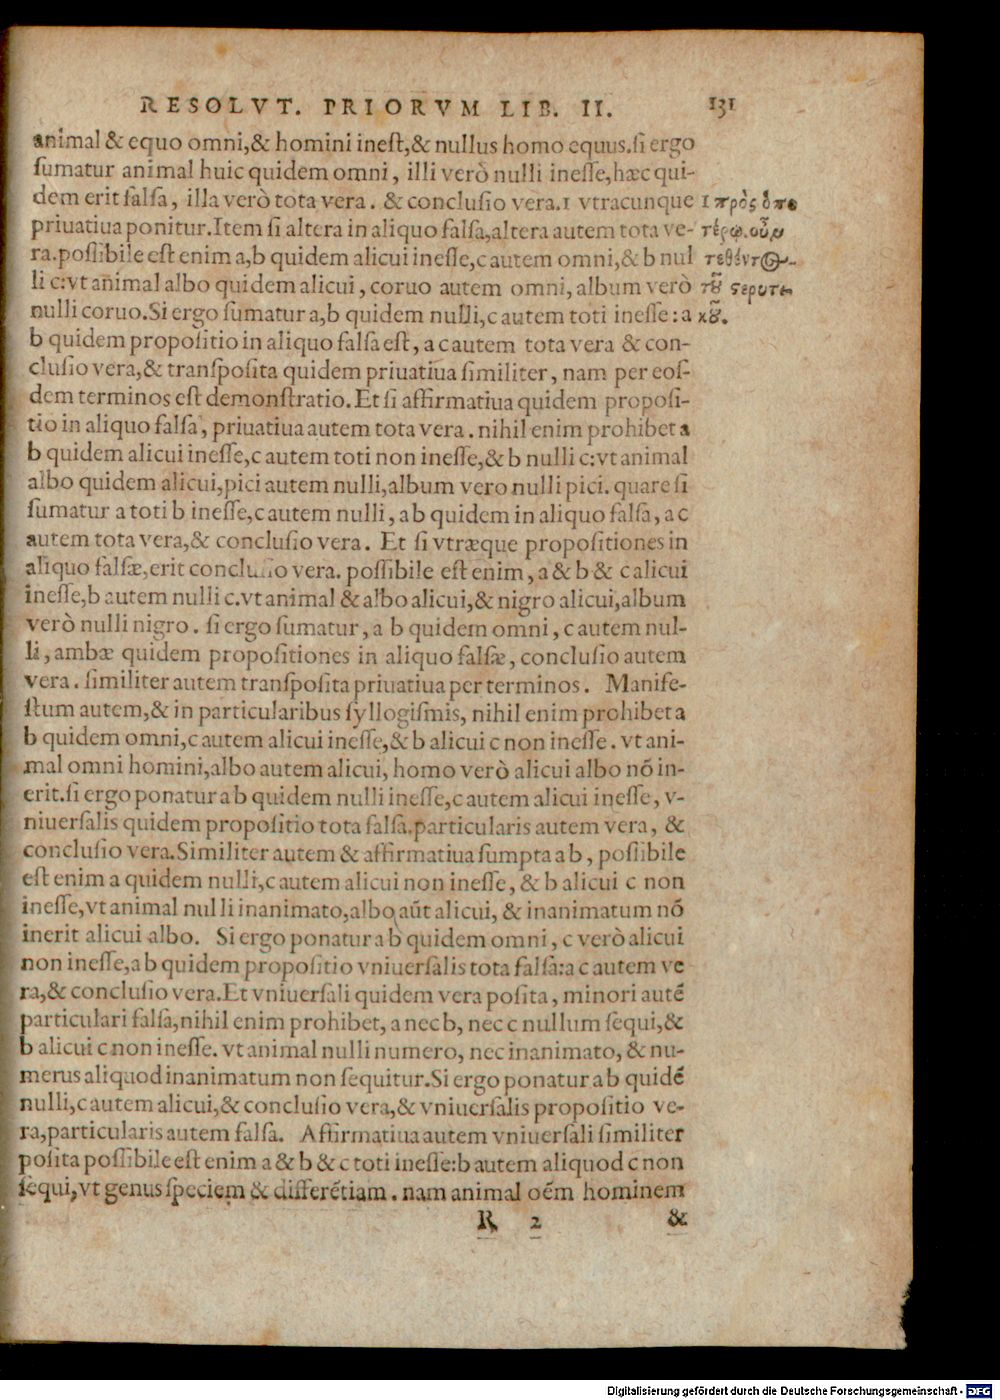 RESOLVT. PRIORVM LIB. II. 131
animal & equo omni,& homini inest,& nullus homo equus.si ergo
sumatur animal huic quidem omni, illi verò nulli inesse,hæc qui-
dem erit falsa, illa verò tota vera. & conclusio vera.1 vtracunque
priuatiua ponitur.Item si altera in aliquo falsa,altera autem tota ve-
ra.possibile est enim a,b quidem alicui inesse,c autem omni,& b nul
li c:vt animal albo quidem alicui, coruo autem omni, album verò
nulli coruo.Si ergo sumatur a,b quidem nulli,c autem toti inesse: a
b quidem propositio in aliquo falsa est, a c autem tota vera & con-
clusio vera,& transposita quidem priuatiua similiter, nam per eos-
dem terminos est demonstratio.Et si affirmatiua quidem proposi-
tio in aliquo falsa, priuatiua autem tota vera. nihil enim prohibet a
b quidem alicui inesse,c autem toti non inesse,& b nulli c:vt animal
albo quidem alicui,pici autem nulli,album vero nulli pici. quare si
sumatur a toti b inesse,c autem nulli, a b quidem in aliquo falsa, a c
autem tota vera,& conclusio vera. Et si vtræque propositiones in
aliquo falsæ,erit conclusio vera. possibile est enim, a & b & c alicui
inesse,b autem nulli c.vt animal & albo alicui,& nigro alicui,album
verò nulli nigro. si ergo sumatur, a b quidem omni, c autem nul-
li, ambæ quidem propositiones in aliquo falsæ, conclusio autem
vera. similiter autem transposita priuatiua per terminos. Manife-
stum autem,& in particularibus syllogismis, nihil enim prohibet a
b quidem omni,c autem alicui inesse,& b alicui c non inesse. vt ani-
mal omni homini,albo autem alicui, homo verò alicui albo nō in-
erit.si ergo ponatur a b quidem nulli inesse,c autem alicui inesse, v-
niuersalis quidem propositio tota falsa.particularis autem vera, &
conclusio vera.Similiter autem & affirmatiua sumpta a b, possibile
est enim a quidem nulli,c autem alicui non inesse, & b alicui c non
inesse,vt animal nulli inanimato,albo aūt alicui, & inanimatum nō
inerit alicui albo. Si ergo ponatur a b quidem omni, c verò alicui
non inesse,a b quidem propositio vniuersalis tota falsa:a c autem ve
ra,& conclusio vera.Et vniuersali quidem vera posita, minori autē
particulari falsa,nihil enim prohibet, a nec b, nec c nullum sequi,&
b alicui c non inesse. vt animal nulli numero, nec inanimato, & nu-
merus aliquod inanimatum non sequitur.Si ergo ponatur a b quidē
nulli,c autem alicui,& conclusio vera,& vniuersalis propositio ve-
ra,particularis autem falsa. Affirmatiua autem vniuersali similiter
posita possibile est enim a & b & c toti inesse:b autem aliquod c non
sequi,vt genus speciem & differētiam. nam animal oēm hominem
R 2 &
1 πρὸς ὁπο
τέρῳ.
τεθέντος
τοῦ στερητι
κοῦ.
Digitalisierung gefördert durch die Deutsche Forschungsgemeinschaft - DFG